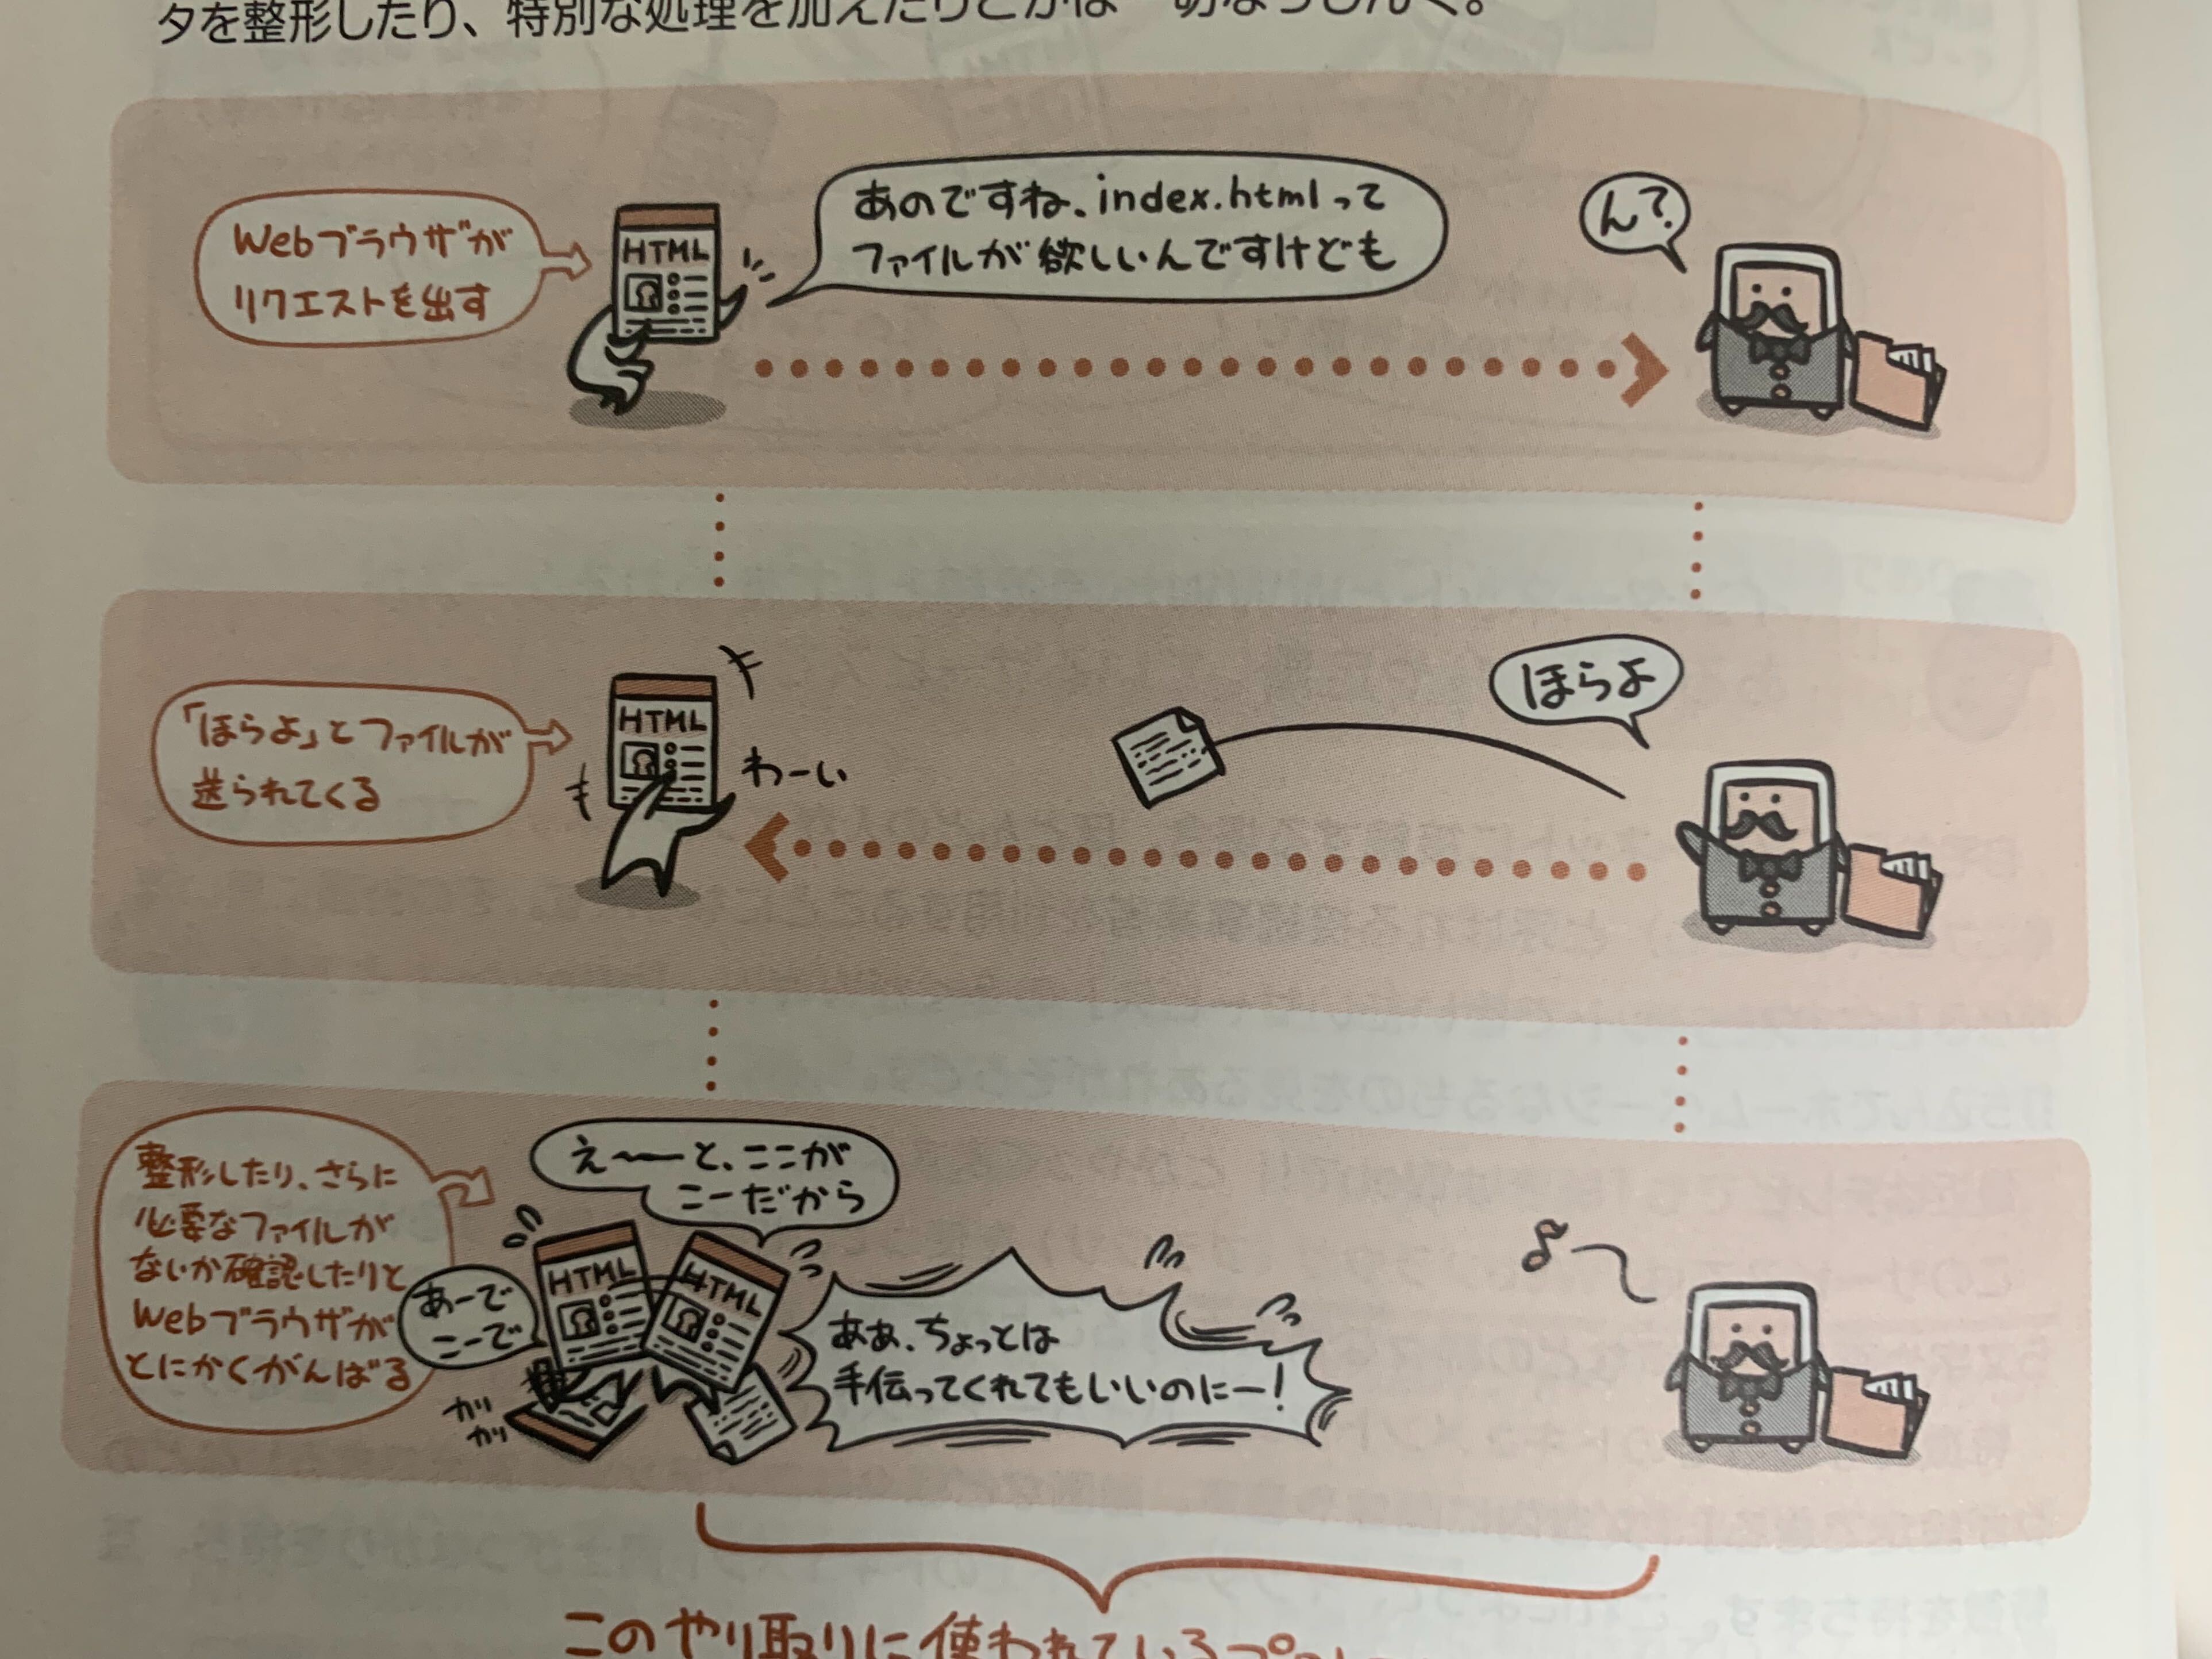 タを整形したり、特別な処理を加えたりとかは一切なっしんぐ。
Webブラウザが
リクエストを出す
HTML
あのですね、index.htmlって
ファイルが欲しいんですけども
ん?
「ほらよ」とファイルが
送られてくる
HTML
わーい
ほらよ
整形したり、さらに
必要なファイルが
ないか確認したりと
Webブラウザが
とにかくがんばる
え〜ーと、ここが
こーだから
あーで
こーで
HTML
HTML
カリ
カリ
ああ、ちょっとは
手伝ってくれてもいいのにー!
このやり取りに使われている